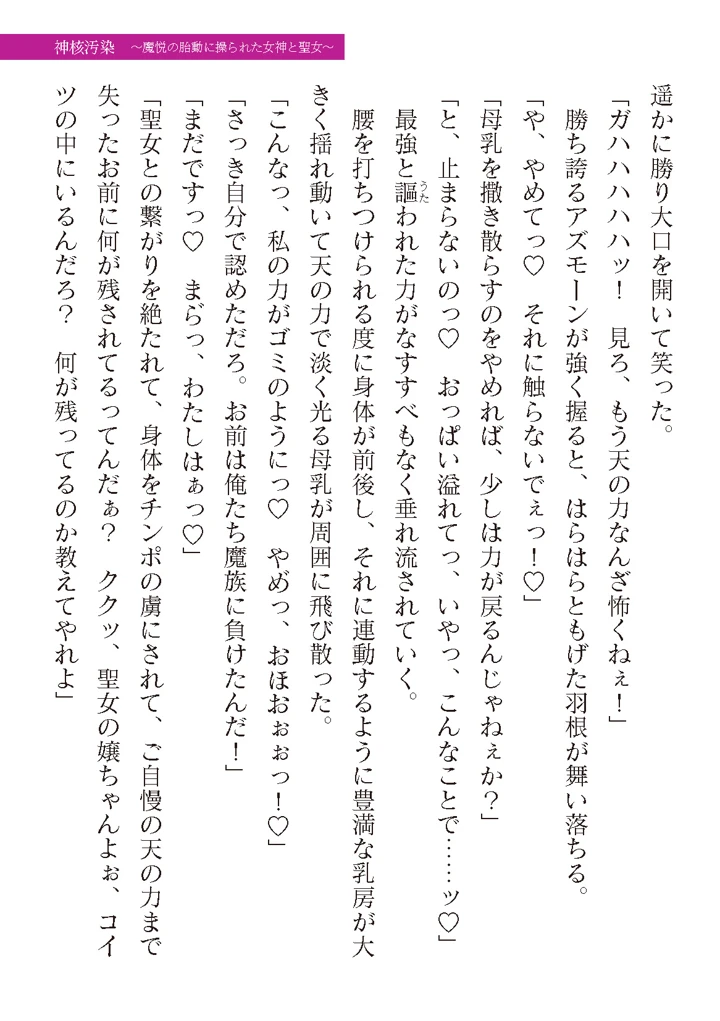 神核汚染　～魔悦の胎動に操られた女神と聖女～
遥かに勝り大口を開いて笑った。
「ガハハハハハッ！　見ろ、もう天の力なんざ怖くねぇ！」
　勝ち誇るアズモーンが強く握ると、はらはらともげた羽根が舞い落ちる。
「や、やめてっ♡　それに触らないでぇっ！♡」
「母乳を撒き散らすのをやめれば、少しは力が戻るんじゃねぇか？」
「と、止まらないのっ♡　おっぱい溢れてっ、いやっ、こんなことで……ッ♡」
　最強と謳われた力がなすすべもなく垂れ流されていく。
うた
　腰を打ちつけられる度に身体が前後し、それに連動するように豊満な乳房が大
きく揺れ動いて天の力で淡く光る母乳が周囲に飛び散った。
「こんなっ、私の力がゴミのようにっ♡　やめっ、おほおぉぉっ！♡」
「さっき自分で認めただろ。お前は俺たち魔族に負けたんだ！」
「まだですっ♡　まらっ、わたしはぁっ♡」
「聖女との繋がりを絶たれて、身体をチンポの虜にされて、ご自慢の天の力まで
失ったお前に何が残されてるってんだぁ？　ククッ、聖女の嬢ちゃんよぉ、コイ
ツの中にいるんだろ？　何が残ってるのか教えてやれよ」